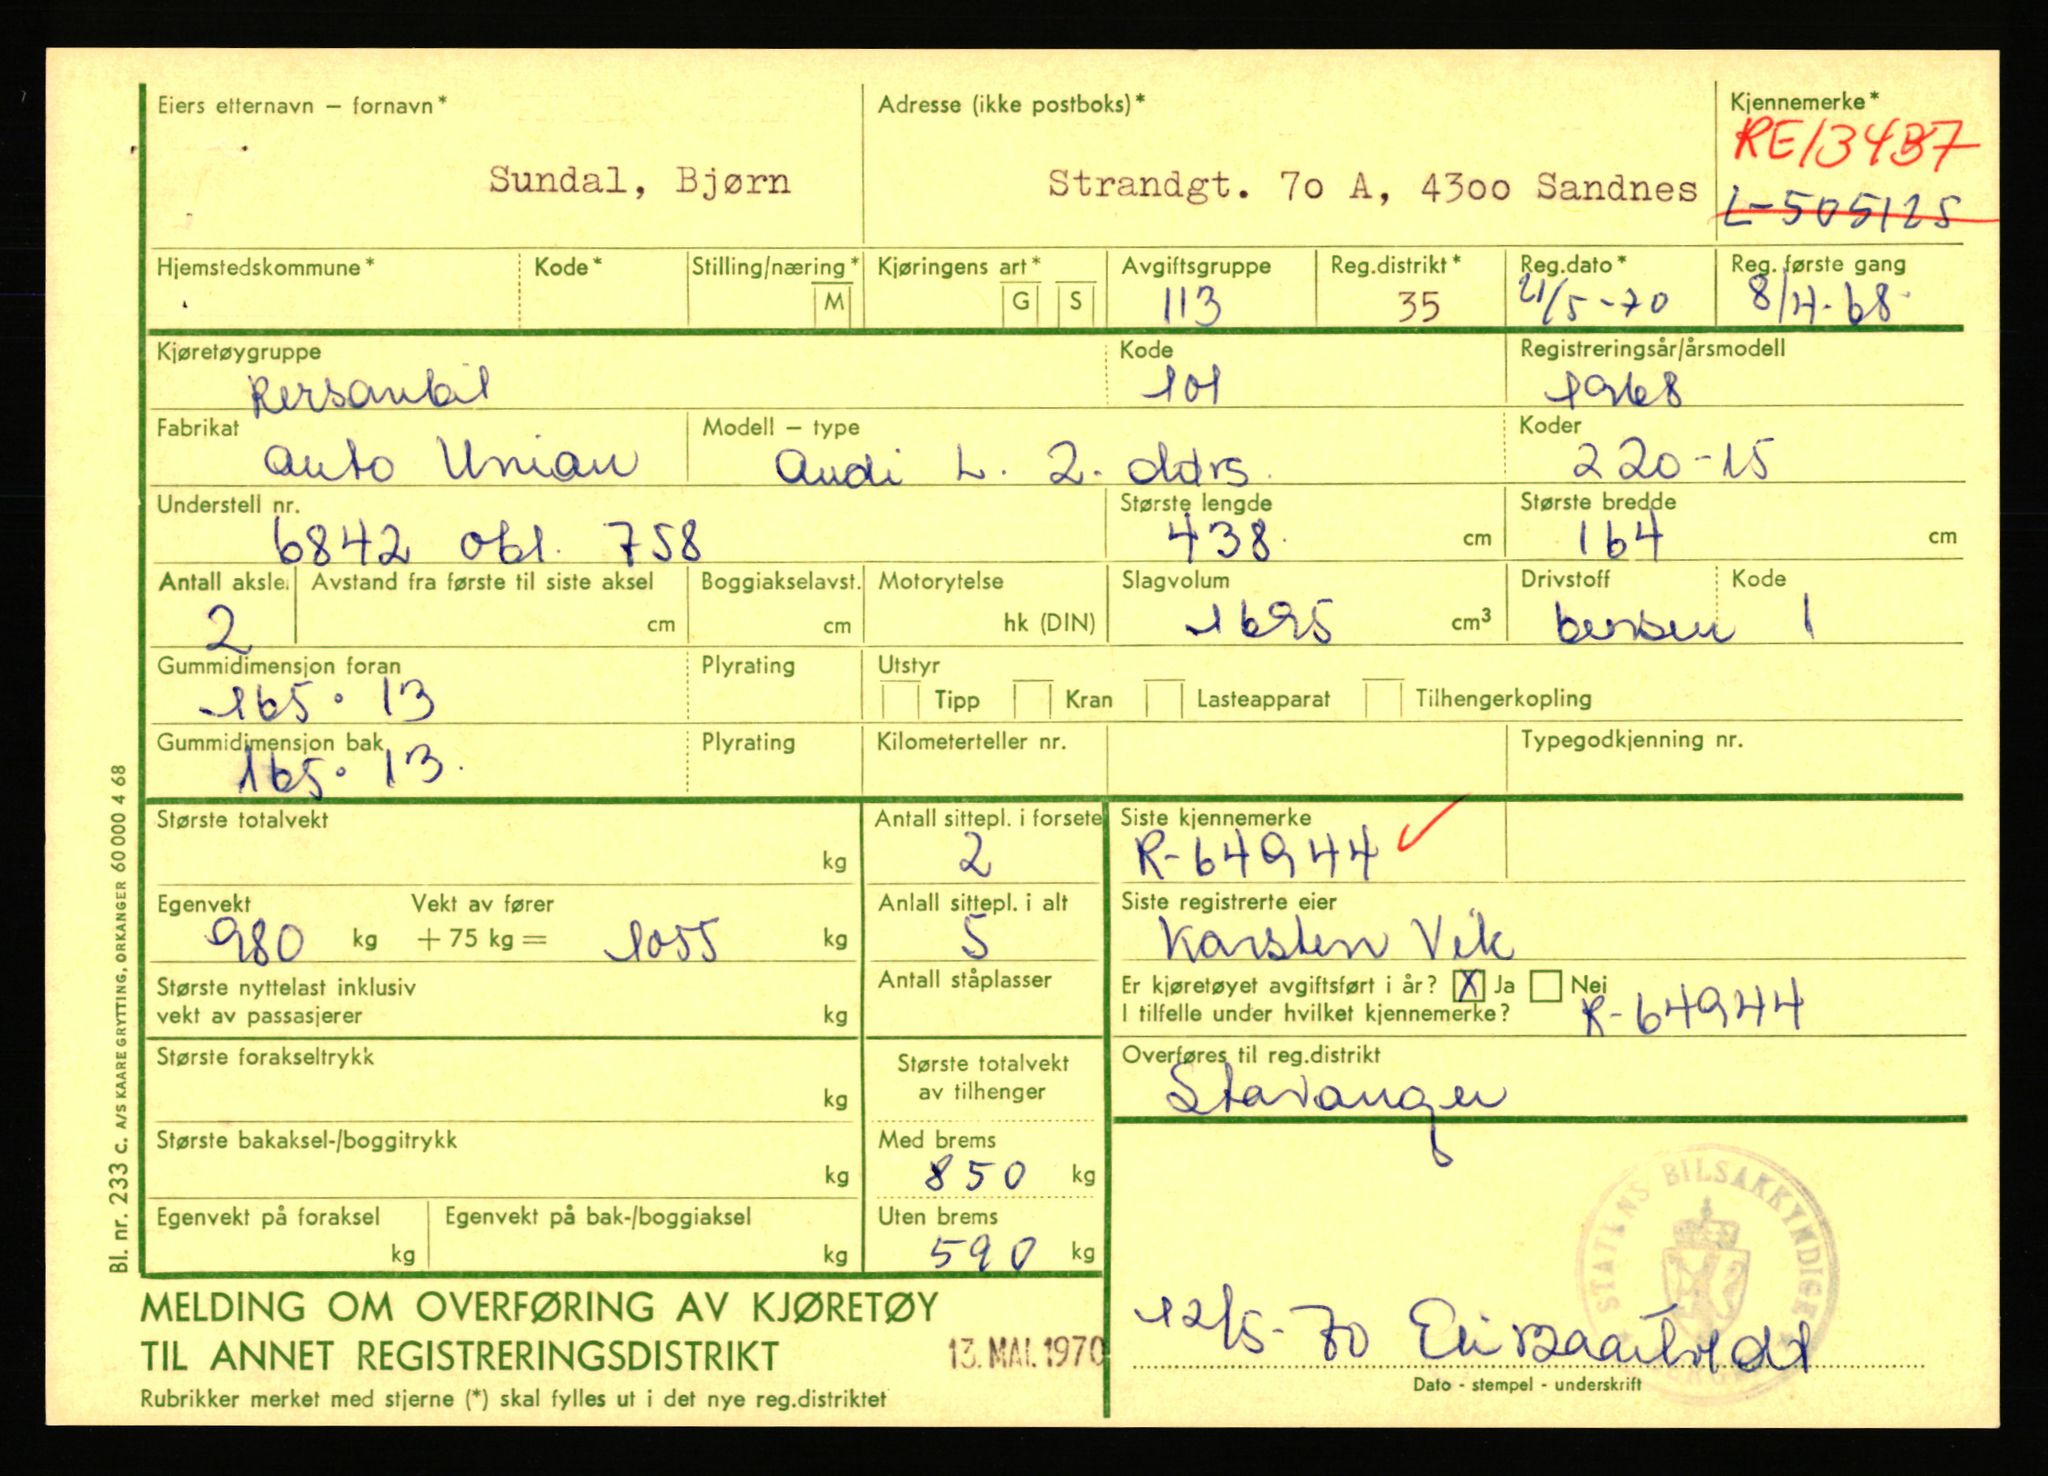 Eiers etternavn – fornavn*
Adresse (ikke postboks)*
Kjennemerke*
RE/3437
Sundal, Bjørn
Strandgt. 7o A, 43oo Sandnes
L-505125
Hjemstedskommune*
Kode*
Stilling/næring*
M
Kjøringens art*
G
S
Avgiftsgruppe
113
Reg.distrikt*
35
Reg.dato*
21/5-70
Reg. første gang
8/4-68
Kjøretøygruppe
Personbil
Kode
101
Registreringsår/årsmodell
1968
Fabrikat
Auto Union
Modell – type
Audi L. 2. ddrs.
Koder
220-15
Understell nr.
6842 obl. 758
Største lengde
438 cm
Største bredde
164 cm
Antall aksle.
2
Avstand fra første til siste aksel
cm
Boggiakselavst.
cm
Motorytelse
hk (DIN)
Slagvolum
1695 cm³
Drivstoff
bensin
Kode
1
Gummidimensjon foran
165 · 13
Plyrating
Utstyr
Tipp
Kran
Lasteapparat
Tilhengerkopling
Gummidimensjon bak
165 · 13.
Plyrating
Kilometerteller nr.
Typegodkjenning nr.
Største totalvekt
kg
Antall sittepl. i forsete
2
Siste kjennemerke
R-64944
Egenvekt
980 kg
Vekt av fører
+ 75 kg = 1055 kg
Anlall sittepl. i alt
5
Siste registrerte eier
Karsten Vik
Største nyttelast inklusiv
vekt av passasjerer
kg
Antall ståplasser
Er kjøretøyet avgiftsført i år? X Ja Nei
I tilfelle under hvilket kjennemerke? R-64944
Største forakseltrykk
kg
Største totalvekt
av tilhenger
Overføres til reg.distrikt
Stavanger
Største bakaksel-/boggitrykk
kg
Med brems
850 kg
Egenvekt på foraksel
kg
Egenvekt på bak-/boggiaksel
kg
Uten brems
590 kg
STATENS BILSAKKYNDIGE
MELDING OM OVERFØRING AV KJØRETØY
TIL ANNET REGISTRERINGSDISTRIKT
13. MAI. 1970
12/5-70
Rubrikker merket med stjerne (*) skal fylles ut i det nye reg.distriktet
Dato - stempel - underskrift
Bl. nr. 233 c. A/S KAARE GRYTTING, ORKANGER 60 000 4 68